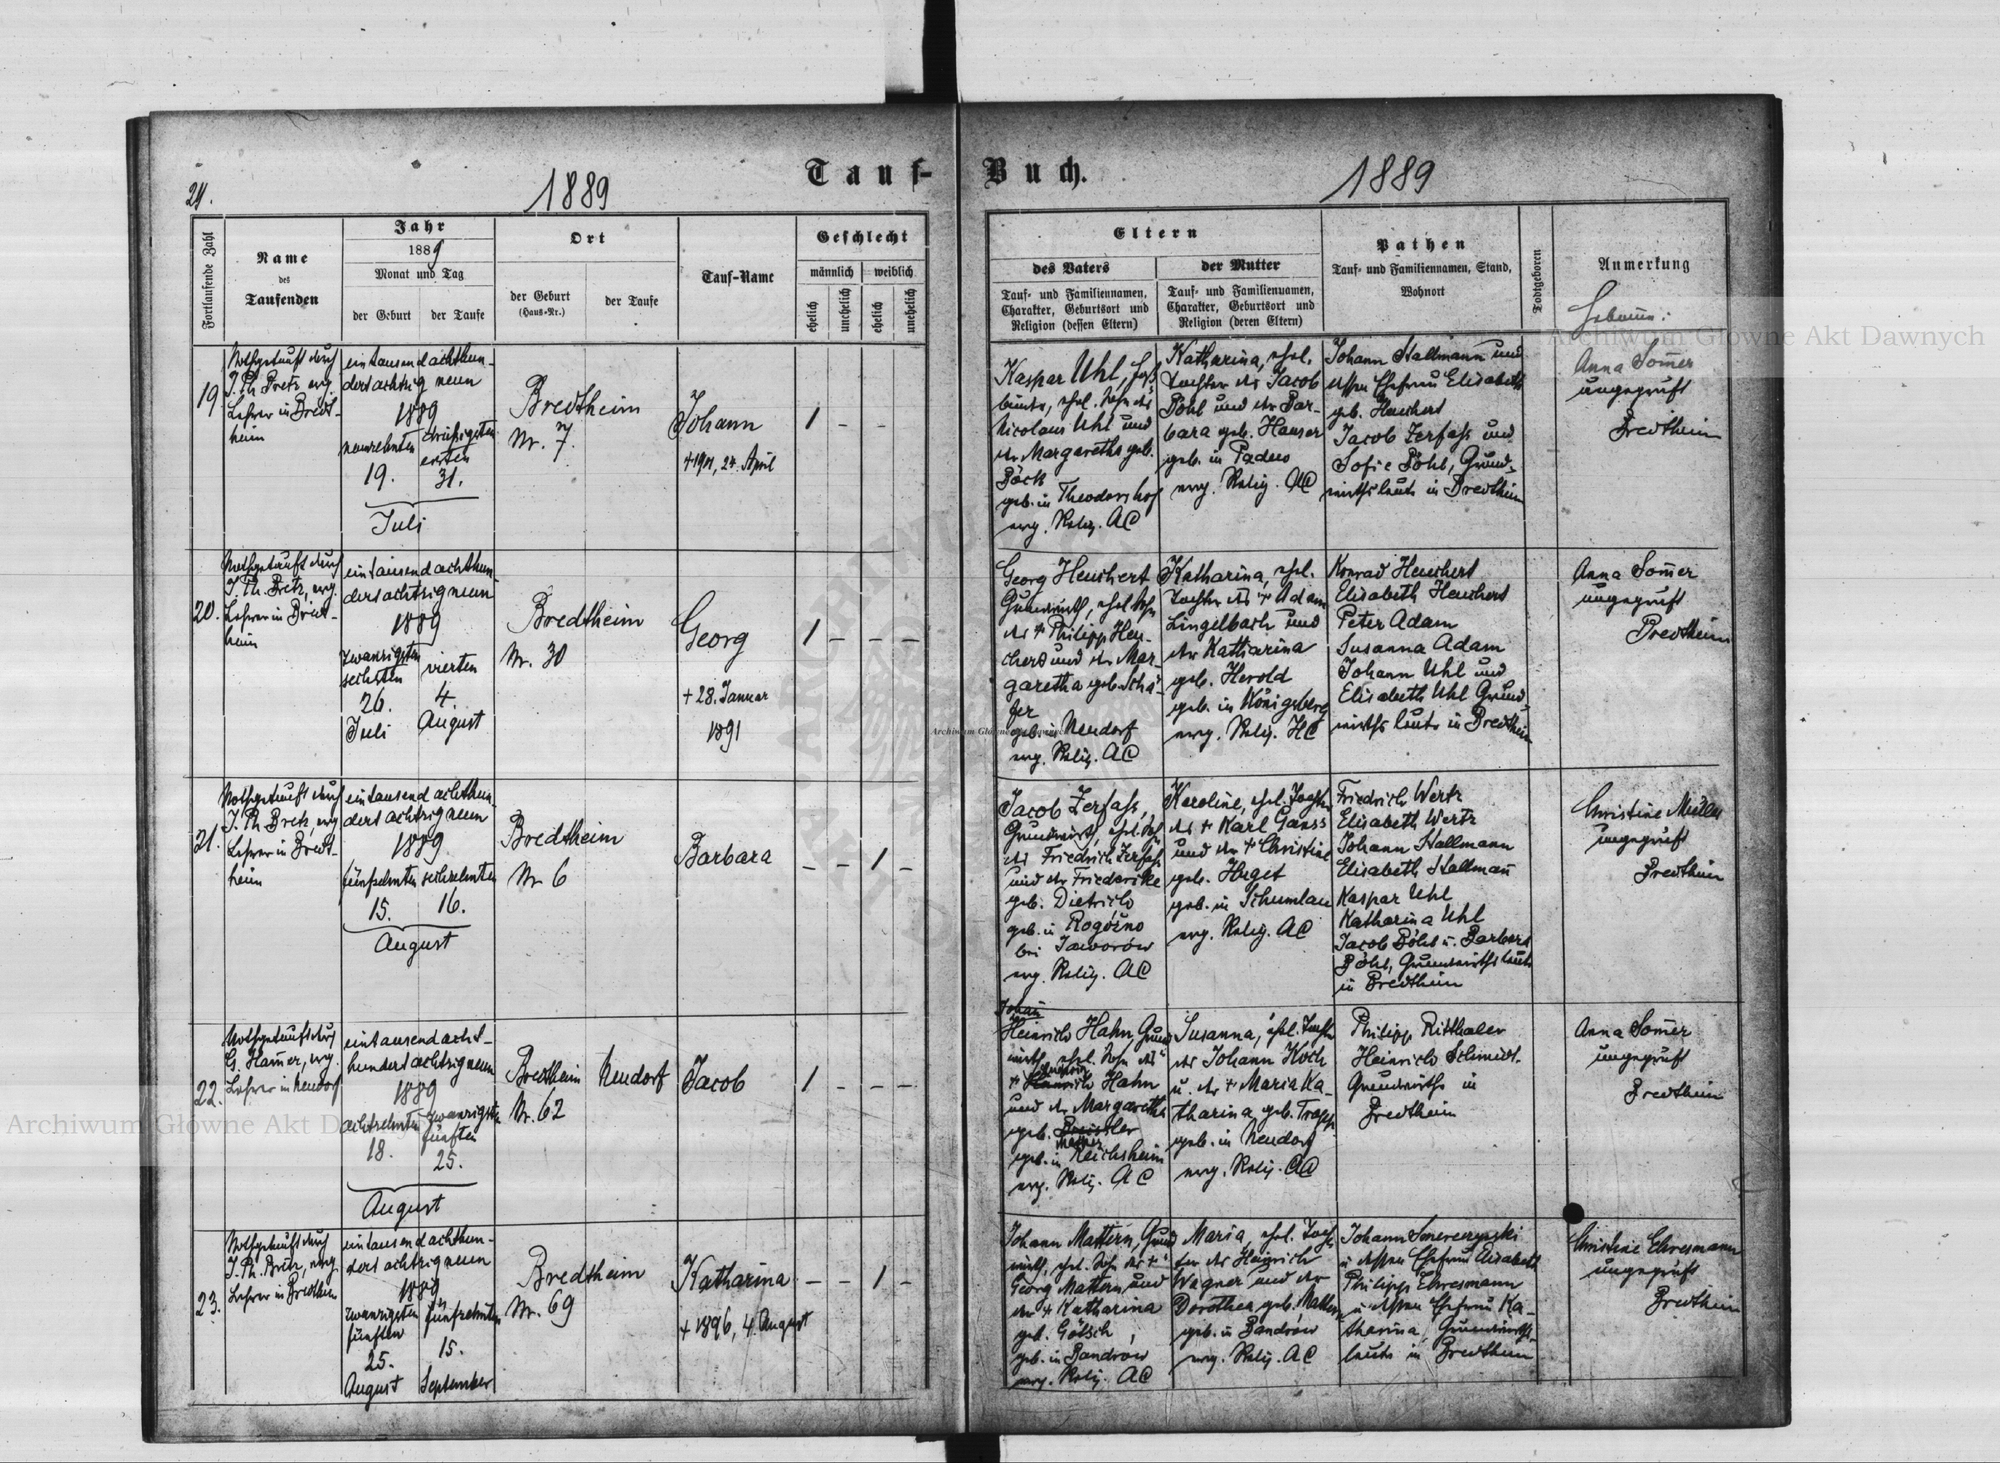 24.
1889
Tauf-
Buch.
1889
Fortlaufende Zahl
Name
des
Taufenden
Jahr
1889
Monat und Tag
der Geburt
der Taufe
Ort
der Geburt
(Haus-Nr.)
der Taufe
Tauf-Name
Geschlecht
männlich
weiblich
ehelich
unehelich
ehelich
unehelich
Eltern
des Vaters
Tauf- und Familiennamen,
Charakter, Geburtsort und
Religion (dessen Eltern)
der Mutter
Tauf- und Familiennamen,
Charakter, Geburtsort und
Religion (deren Eltern)
Pathen
Tauf- und Familiennamen, Stand,
Wohnort
Todtgeboren
Anmerkung
Hebamme:
19
Nothgetauft durch
J. Ph. Bretz, evg.
Lehrer in Bredt-
heim
eintausendachthun-
dertachtzig neun
1889
neunzehnten
19.
dreißigsten
ersten
31.
Juli
Bredtheim
Nr. 7.
Johann
+ 1901, 24. April
1 - -
Kaspar Uhl,
ehel. Sohn des
Nicolaus Uhl und
der Margaretha geb.
Böck
geb. in Theodorshof
evg. Relig. AC
Katharina, ehel.
Tochter des Jacob
Pöhl und der Bar-
bara geb. Hauser
geb. in
evg. Relig. AC
Johann Stallmann und
dessen Ehefrau Elisabeth
geb. Heuchert
Jacob Zerfass und
Sofie Pöhl, Grund-
wirthsleute in Bredtheim
Anna Sommer
ungeprüft
Bredtheim
20.
Nothgetauft durch
J. Ph. Bretz, evg.
Lehrer in Bredt-
heim
eintausendachthun-
dertachtzigneun
1889
zwanzigsten
sechsten
26.
Juli
vierten
4.
August
Bredtheim
Nr. 30
Georg
+ 28. Januar
1891
1 - - -
Georg Heuchert
Grundwirth, ehel. Sohn
des + Philipp Heu-
chert und der Mar-
garetha geb. Schä-
fer
geb. in Neudorf
evg. Relig. AC
Katharina, ehel.
Tochter des + Adam
Lingelbach und
der Katharina
geb. Herold
geb. in Königsberg
evg. Relig. HC
Konrad Heuchert
Elisabeth Heuchert
Peter Adam
Susanna Adam
Johann Uhl und
Elisabeth Uhl Grund-
wirthsleute in Bredtheim
Anna Sommer
ungeprüft
Bredtheim
21.
Nothgetauft durch
J. Ph. Bretz, evg.
Lehrer in Bredt-
heim
eintausendachthun-
dertachtzigneun
1889
fünfzehnten
15.
sechzehnten
16.
August
Bredtheim
Nr 6
Barbara
- - 1 -
Jacob Zerfass,
Grundwirth, ehel. Sohn
des Friedrich Zerfass
und der Friederike
geb. Dietrich
geb. in Rogóźno
bei Jaworów
evg. Relig. AC
Karoline, ehel. Tochter
des + Karl Gauss
und der + Christine
geb. Huget
geb. in Schumlau
evg. Relig. AC
Friedrich Wertz
Elisabeth Wertz
Johann Stallmann
Elisabeth Stallmann
Kaspar Uhl
Katharina Uhl
Jacob Pöhl u. Barbara
Pöhl, Grundwirthsleute
in Bredtheim
Christine Müller
ungeprüft
Bredtheim
22.
Nothgetauft durch
G. Hamer, evg.
Lehrer in Neudorf
eintausendacht-
hundertachtzigneun
1889
achtzehnten
18.
zwanzigsten
fünften
25.
August
Bredtheim
Nr. 62
Neudorf
Jacob
1 - - -
Johann
Heinrich Hahn Grund-
wirth, ehel. Sohn des
+ Heinrich Hahn
und der Margaretha
geb.
geb. in Reichsheim
evg. Relig. AC
Susanna, ehel. Tochter
des Johann Koch
u. der + Maria Ka-
tharina geb. Trapp
geb. in Neudorf
evg. Relig. AC
Philipp Ritthaler
Heinrich Schmidt
Grundwirthe in
Bredtheim
Anna Sommer
ungeprüft
Bredtheim
23.
Nothgetauft durch
J. Ph. Bretz, evg.
Lehrer in Bredtheim
eintausendachthun-
dertachtzigneun
1889
zwanzigsten
fünften
25.
August
fünfzehnten
15.
September
Bredtheim
Nr. 69
Katharina
+ 1896, 4. August
- - 1 -
Johann Mattern, Grund-
wirth, ehel. Sohn des +
Georg Mattern und
der + Katharina
geb. Götsch,
geb. in Bandrow
evg. Relig. AC
Maria, ehel. Toch-
ter des Heinrich
Wagner und der
Dorothea geb. Mattern
geb. in Bandrów
evg. Relig. AC
Johann
u. dessen Ehefrau Elisabeth
Philipp Ehresmann
u. dessen Ehefrau Ka-
tharina, Grundwirths-
leute in Bredtheim
Christine Ehresmann
ungeprüft
Bredtheim
Archiwum Główne Akt Dawnych
Archiwum Główne Akt Dawnych
Archiwum Główne Akt Dawnych